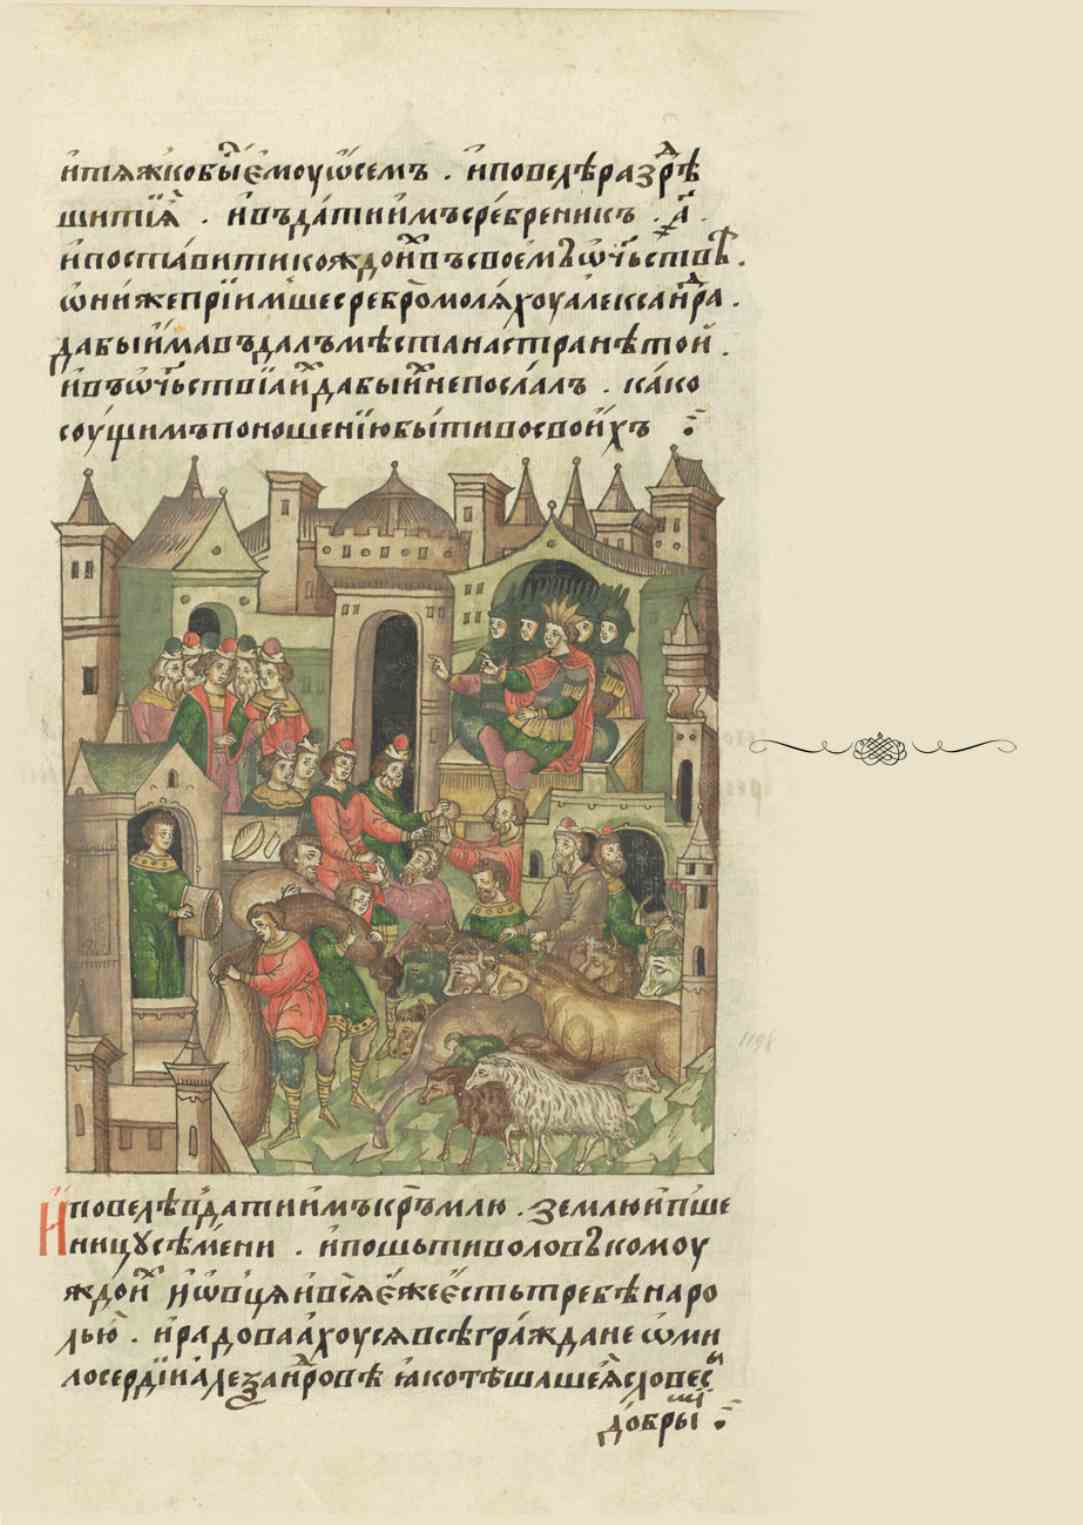 и҆тѧжкобы́ є҆моуѡ҆семъ . и҆повелѣразрѣ
шитиⷯѧ . и҆въда́тиимъсре́бреникъ .҂а҃.
и҆поста́витикождои҆ⷯвъсвоемꙋ̀ѡ҆чь́ствѣ .
ѡ҆ниже прїи҆мшесребро́молѧ́хоуа҆леѯаⷩ҇дра .
дабыи҆мавъдалъмѣстана́странѣтои҆ .
и҆въѡ҆чь́ствїаиⷯдабыи҆ⷯнепосла́лъ . ка́ко
соущимъпоношенїюбы́тивосвои҆хъ ⁘
И҆повелѣвⷣатиимъкръ́млю . землюи҆пше
ницꙋсѣ́мени . и҆пошьтиволовꙋкомоу
ждои҆ⷯ и҆ѡ҆вцѧи҆всѧ̀є҆́жеє҆́стьтребѣнаро
лью . и҆ра́довааⷯхоусѧвсѣгра́ждане ѡ҆ми
лосе́рдїиа҆леза́нⷣровѣ ꙗ҆котѣшашеѧ҆̀словесы̀
до́брыⷨи ⁘
1198